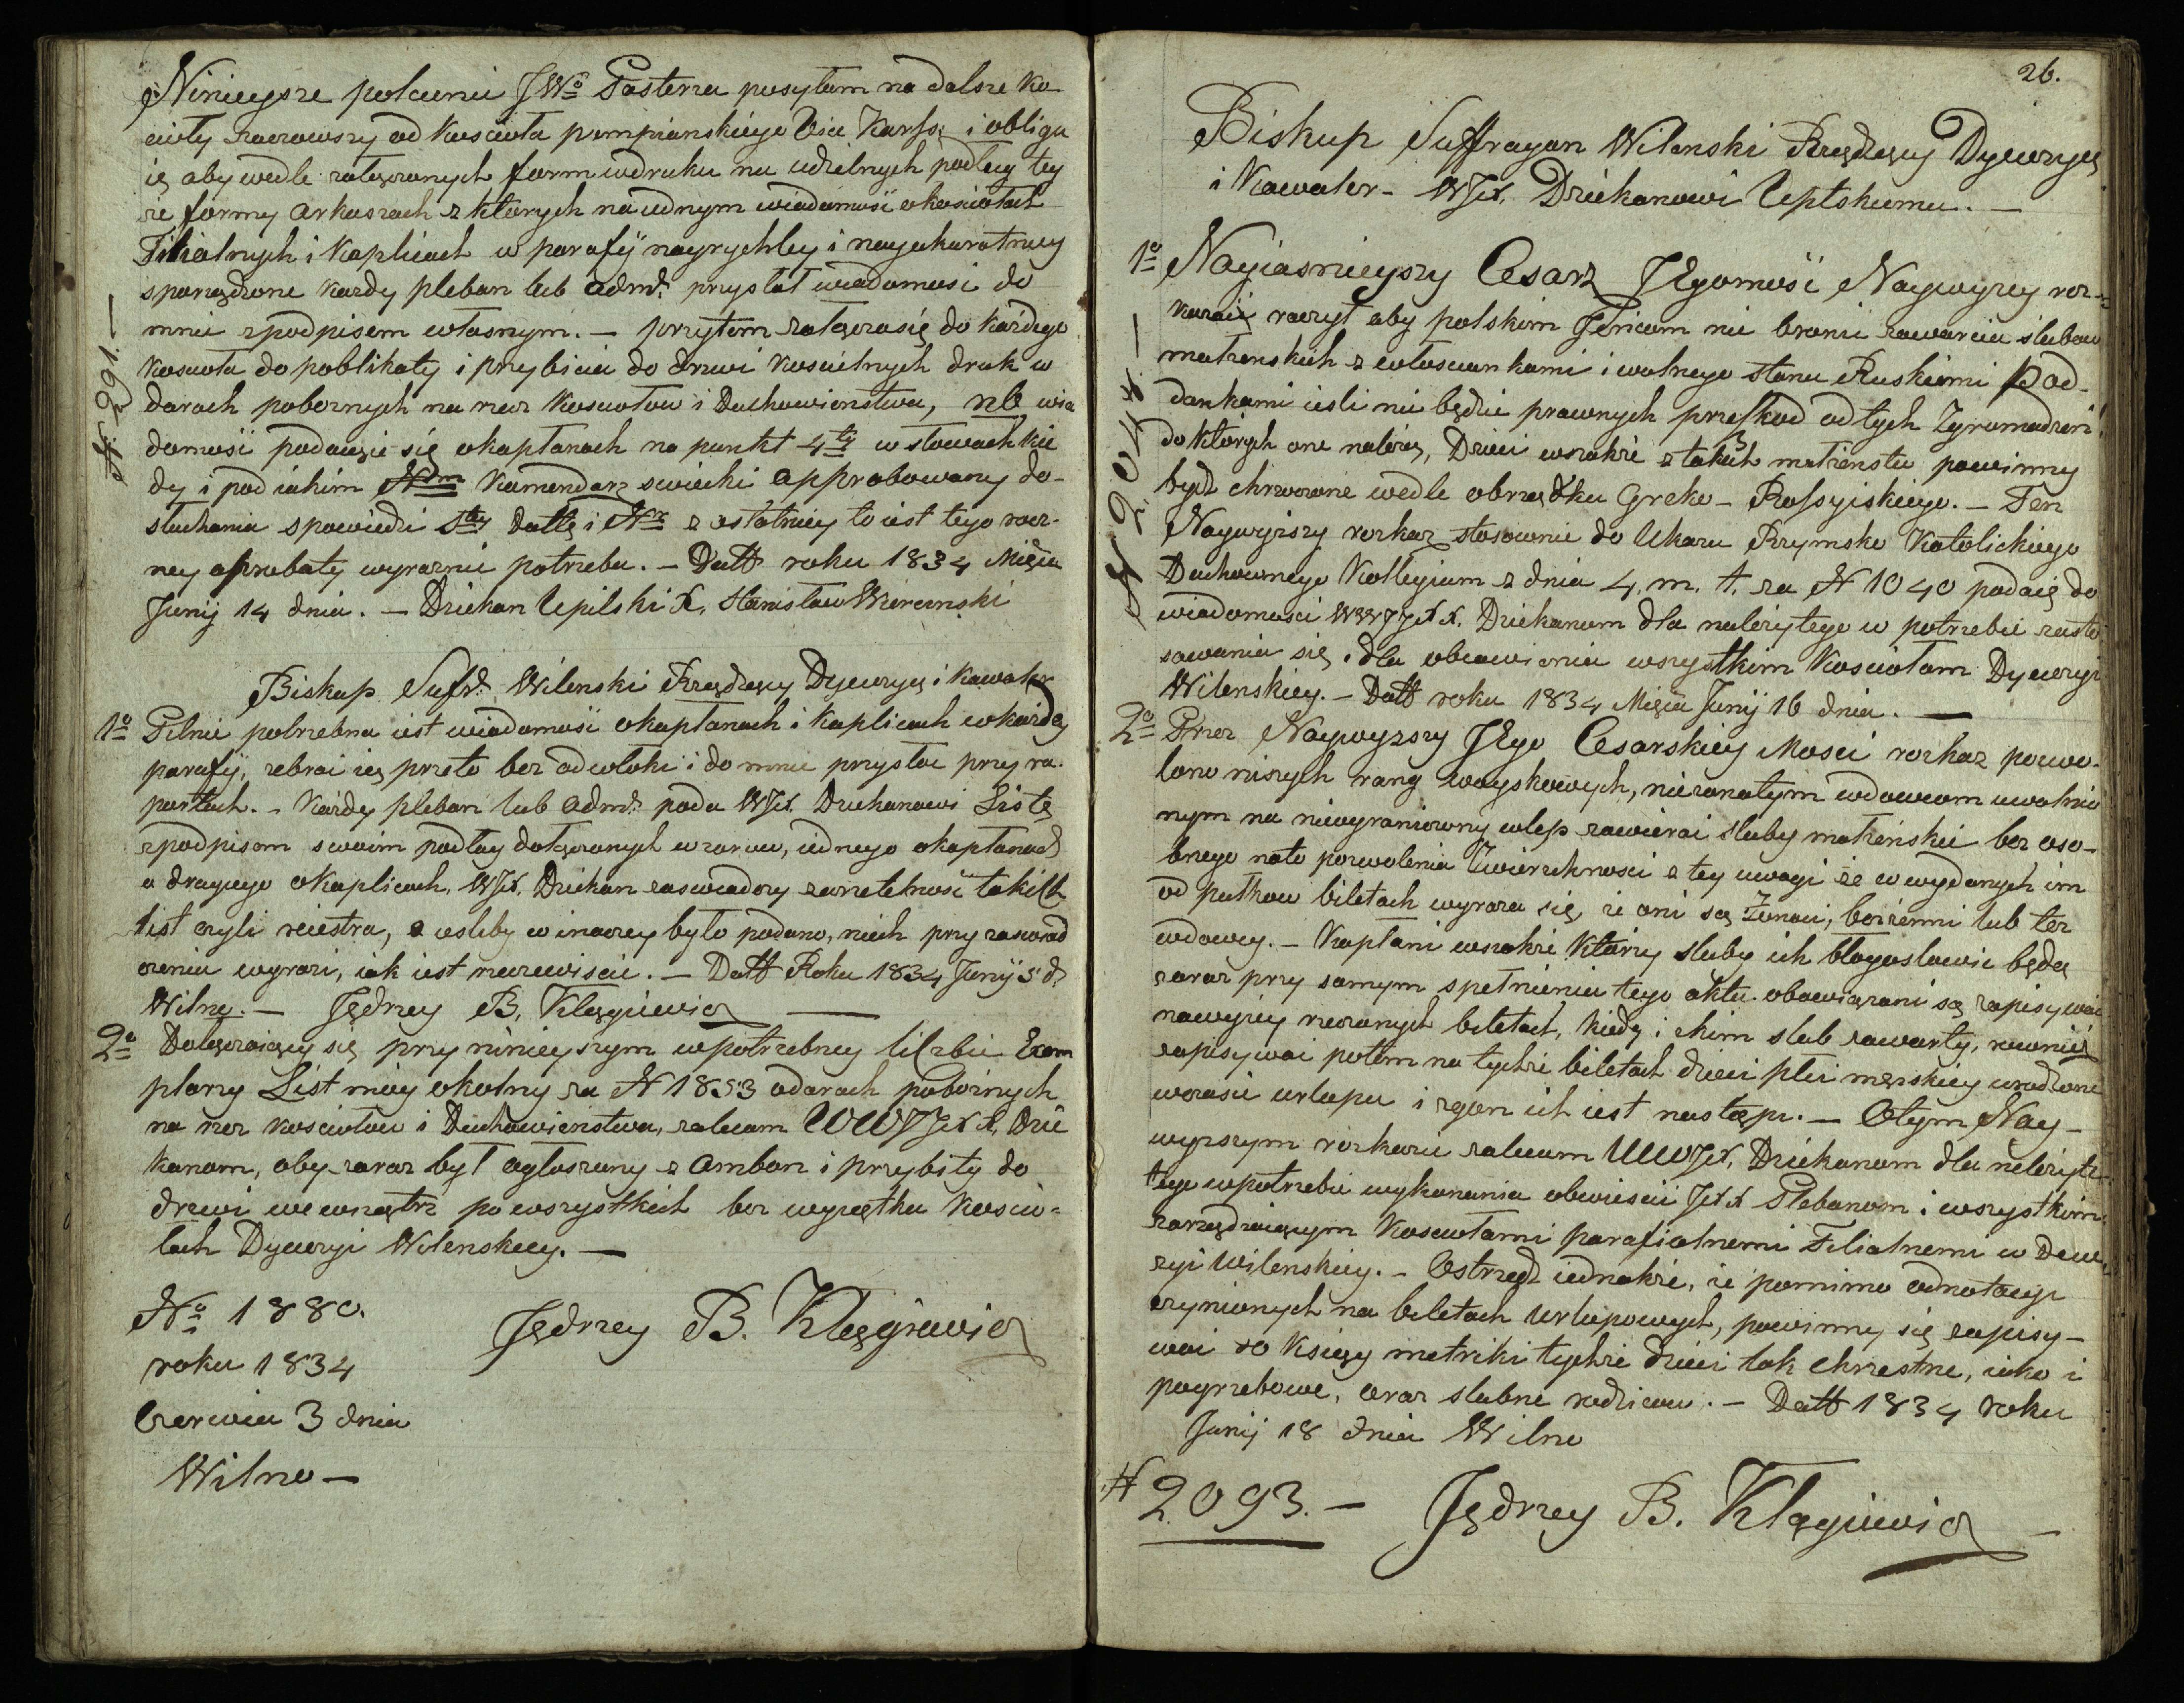 Ninieysze polecenie JWº Pasterza posyłam na dalsze ko-
ścioły zacząwszy od Kościoła pompianskiego Via Kurss: i obligu
ię aby wedle załączonych form wdruku na udzielnych podług tey
że formy arkuszach z których na iednym wiadomość o kościołach
Filialnych i Kaplicach w parafij nayrychley i nayakuratniey
sporządzone każdy pleban lub admr. przysłał wiadomości do
mnie z podpisem własnym. — przytem załącza się do każdego
Kościoła do poblikaty i przybicia do drzwi kościelnych druk w
darach pobożnych na rzecz Kościołow i Duchowieństwa, nb wia
domość podaiąc się o kapłanach na punkt 4ty w słowach kie
dy i pod iakim Nrm Komendarz swiecki approbowany do-
słuchania spowiedzi 5ty dattę i Nr z ostatniey to iest tego rocz-
ney aprobaty wyraznie potrzeba. — Datt roku 1834 Mięsia
Junij 14 dnia. — Dziekan Upitski X. Stanisław
N. 291 —
Biskup Sufr. Wilenski Rządzący Dyecezyą i Kawaler
1º Pilnie potrzebna iest wiadomość o kapłanach i kaplicach w każdey
parafij, zebrać ią przeto bez odwłoki i do mnie przysłać przy ra-
portach. — Każdy pleban lub admr. poda WJX. Dziekanowi Listę
z podpisem swoim podług dołączonych wzorow, iednego o kapłanach
a drugiego o kaplicach, WJX. Dziekan zaswiadczy za rzetelność takich
list czyli reiestra, a iesliby w inaczey było podano, niech przy zaswiad
czeniu wyrazi, iak iest rzeczywiscie. — Datt Roku 1834 Junij 5 d.
Wilno. — Jędrzey B. Kłągiewicz —
2º Dołączaiący się przy ninieyszym w potrzebney liczbie Exem
plarzy List móy okolny za N 1853 o darach pobożnych
na rzecz kościołow i Duchowieństwa, zalecam WWJJXX. Dzie
kanom, aby zaraz był ogłoszony z ambon i przybity do
drzwi wewnątrz po wszystkich bez wyiątku Koscio-
łach Dyecezyi Wilenskiey. —
Nº 1880.
roku 1834
Czerwca 3 dnia
Wilno —
Jędrzey B. Kłągiewicz
26.
Biskup Suffragan Wilenski Rządzący Dyecezyą
i Kawaler — WJX. Dziekanowi Upitskiemu. —
1º Nayiasnieyszy Cesarz JEgomość Naywyżey roz-
kazać raczył aby polskim Jeńcom nie bronić zawarcia slubow
małżenskich z włosciankami i wolnego stanu Ruskiemi Pod-
dankami iesli nie będzie prawnych przeszkod od tych Zgromadzeń
do których one należą, Dzieci wszakże z takich małżenstw powinny
bydź chrzczone wedle obrządku Greko-Rossyiskiego. — Ten
Naywyższy rozkaz stosownie do Ukazu Rzymsko Katolickiego
Duchownego Kollegium z dnia 4. m. t. za N 1040 podaię do
wiadomości WWJJXX. Dziekanom dla należytego w potrzebie zasto
sowania się i dla obiawienia wszystkim Kościołam Dyecezyi
Wilenskiey. — Datt roku 1834 Mięsia Junij 16 dnia. —
N 2044. —
2º Przez Naywyższy JEgo Cesarskiey Mosci rozkaz pozwo-
lono niższych rang woyskowych, nieżonatym i wdowcom uwolnio
nym na nieograniczony urlop zawierać sluby małżenskie bez oso-
bnego na to pozwolenia Zwierzchnosci z tey uwagi że w wydanych im
od pułkow biletach wyraża się, że oni są żonaci, bezżenni lub też
wdowcy. — Kapłani wszakże którzy sluby ich błogosławić będą
zaraz przy samym spełnieniu tego aktu obowiązani są zapisywać
na wyżey rzeczonych biletach, kiedy i z kim slub zawarty, rownież
zapisywać potem na tychże biletach dzieci płci męskiey urodzone
w czasie urlopu i zgon ich iest nastąpi. — O tym Nay-
wyższym rozkazie zalecam WWJX. Dziekanom dla należyte-
tego w potrzebie wykonania obwieścić JXX Plebanom i wszystkim
zarządzaiącym Kościołami parafialnemi Filialnemi w Dyece
zyi Wilenskiey. — Ostrzedz iednakże, że pomimo adnotacyi
czynionych na biletach urlopowych, powinny się zapisy-
wać do Księgi metryki tychże dzieci tak chrzestne, iako i
pogrzebowe, oraz slubne rodzicow. — Datt 1834 roku
Junij 18 dnia Wilno
N 2093. — Jędrzey B. Kłągiewicz —